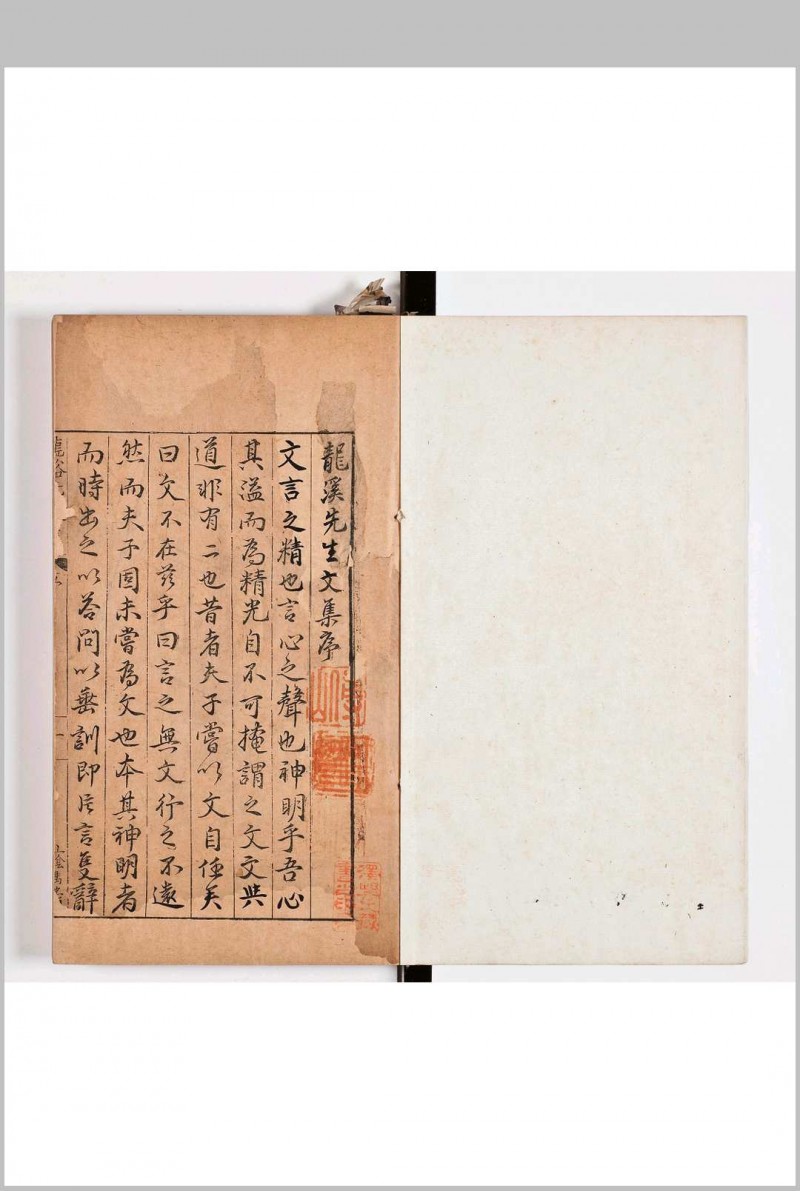 龍溪先生文集序
文言之精也言心之聲也神明乎吾心
其溢而為精光自不可掩謂之文文與
道非有二也昔者夫子嘗以文自任矣
曰文不在茲乎曰言之無文行之不遠
然而夫子固未嘗為文也本其神明者
而時出之以答問以垂訓即片言隻辭
龍谿
序
一